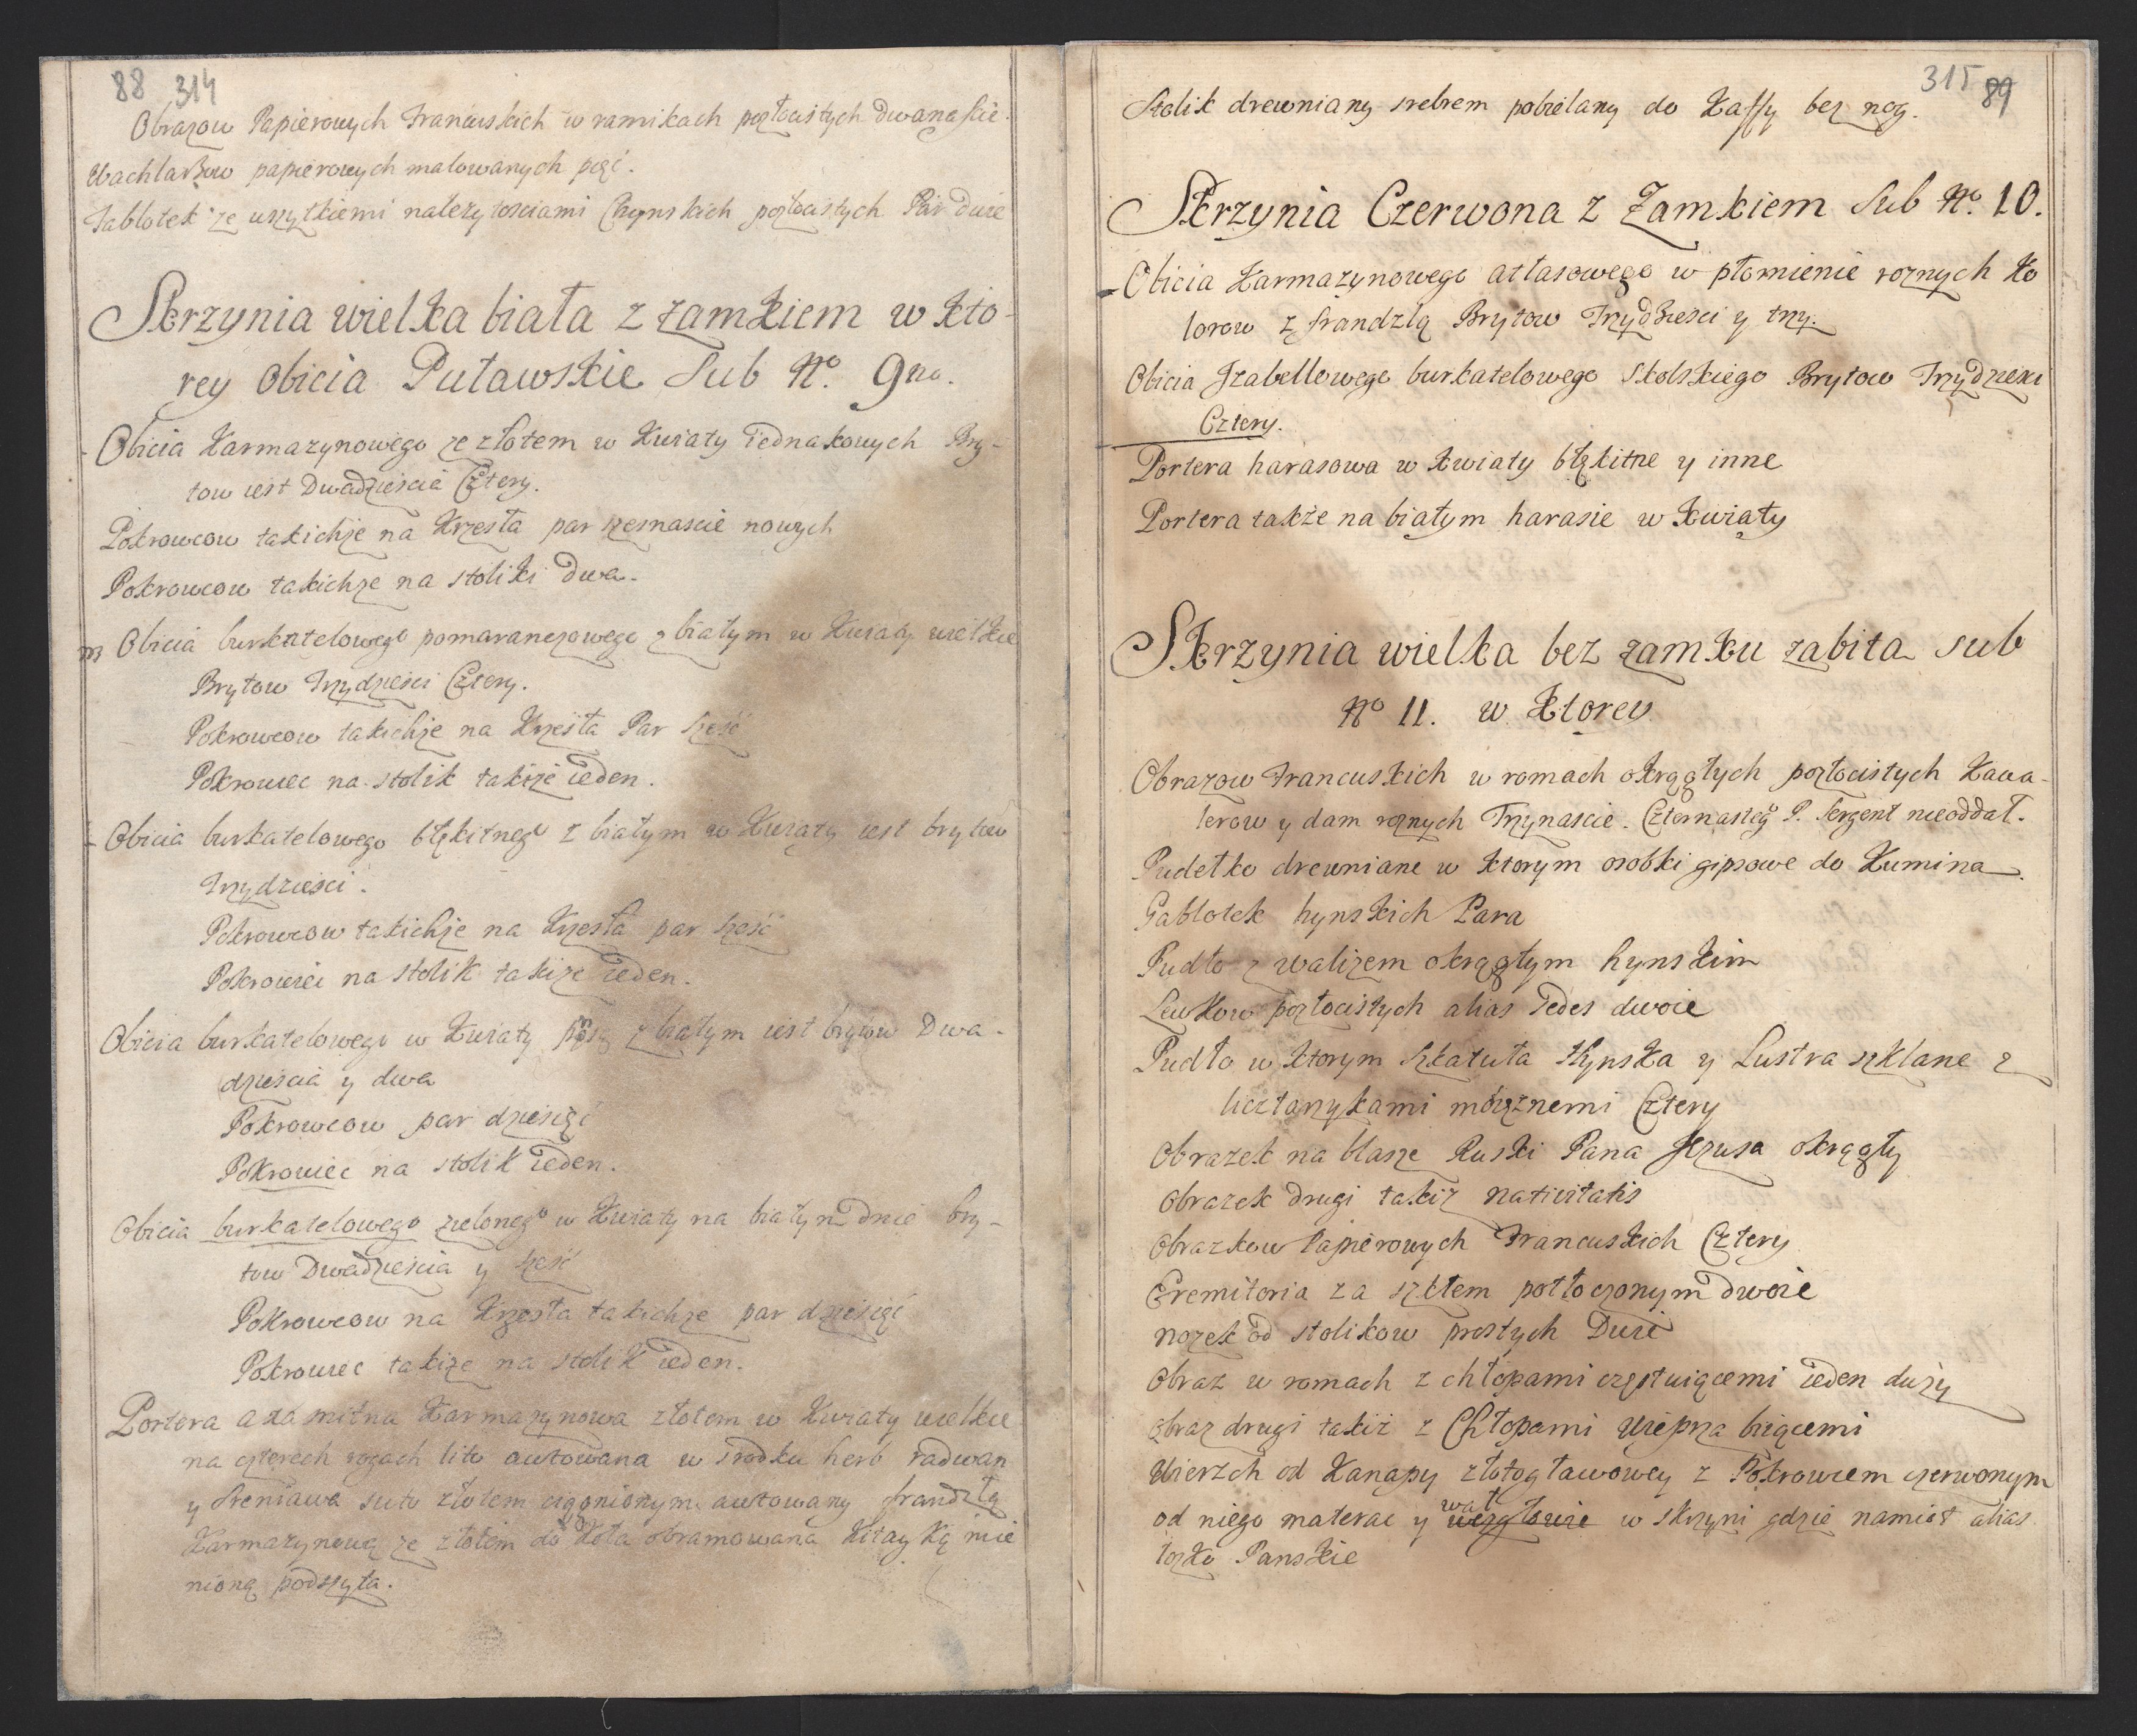 88 314
Obrazow Papierowych Francuskich w ramikach pozłocistych dwanascie.
Wachlarzow papierowych malowanych pięć.
Tablotek ze wszytkiemi należytosciami Chynskich pozłocistych Par dwie
Skrzynia wielka biała z zamkiem w kto-
rey obicia Puławskie Sub No. 9no.
Obicia Karmazynowego ze złotem w Kwiaty iednakowych Bry-
tow iest Dwadziescia Cztery.
Pokrowcow takichże na Krzesła par szesnascie nowych
Pokrowcow takichże na stoliki dwa.
Obicia burkatelowego pomaranczowego z białym w Kwiaty wielkie
Brytow Trzydziesci Cztery.
Pokrowcow takichże na Krzesła Par szesć
Pokrowiec na stolik takiże ieden.
Obicia burkatelowego błękitnego z białym w Kwiaty iest brytow
Trzydziesci.
Pokrowcow takichże na Krzesła par szesć
Pokrowiec na stolik takiże ieden.
Obicia burkatelowego w Kwiaty z białym iest brytow Dwa-
dziescia y dwa
Pokrowcow par dziesięć
Pokrowiec na stolik ieden.
Obicia burkatelowego zielonego w Kwiaty na białym dnie bry-
tow Dwadziescia y szesć
Pokrowcow na Krzesła takichże par dziesięć
Pokrowiec takiże na stolik ieden.
Portera axamitna Karmazynowa złotem w Kwiaty wielkie
na czterech rogach lito autowana w srodku herb radwan
y Sreniawa suto złotem ciągnionym autowany frandzlą
Karmazynową ze złotem do koła obramowana Kitayką mie
nioną podszyta.
315 89
Stolik drewniany srebrem pobielany do Kaffy bez nog.
Skrzynia Czerwona z Zamkiem Sub No. 10.
Obicia Karmazynowego atłasowego w płomienie roznych Ko
lorow z frandzlą Brytow Trzydziesci y trzy.
Obicia Izabellowego burkatelowego Skolskiego Brytow Trzydziesci
Cztery.
Portera harasowa w kwiaty błękitne y inne
Portera także na białym harasie w kwiaty
Skrzynia wielka bez zamku zabita sub
No 11. w Ktorey
Obrazow Francuskich w romach okrągłych pozłocistych Kawa-
lerow y dam roznych Trzynascie. Czternastego P. Sergent nieoddał.
Pudełko drewniane w ktorym osobki gipsowe do Kumina.
Gablotek hynskich Para
Pudło z walizem okrągłym hynskim
Lewkow pozłocistych alias Pedes dwoie
Pudło w ktorym szkatuła Hynska y Lustra szklane z
lichtarzykami mosiężnemi Cztery
Obrazek na blasze Ruski Pana Jezusa okrągły
Obrazek drugi takiż natiuitatis
Obrazkow Papierowych Francuskich Cztery
Eremitoria za szkłem potłoczonym dwoie
nozek od stolikow prostych Dwie
Obraz w romach z chłopami częstuiącemi ieden duży
Obraz drugi takiż z Chłopami Wieprza biiącemi
Wierzch od Kanapy złotogławowey z Pokrowcem czerwonym
od niego materac y wał wezgłowie w skrzyni gdzie namiot alias
łożko Panskie